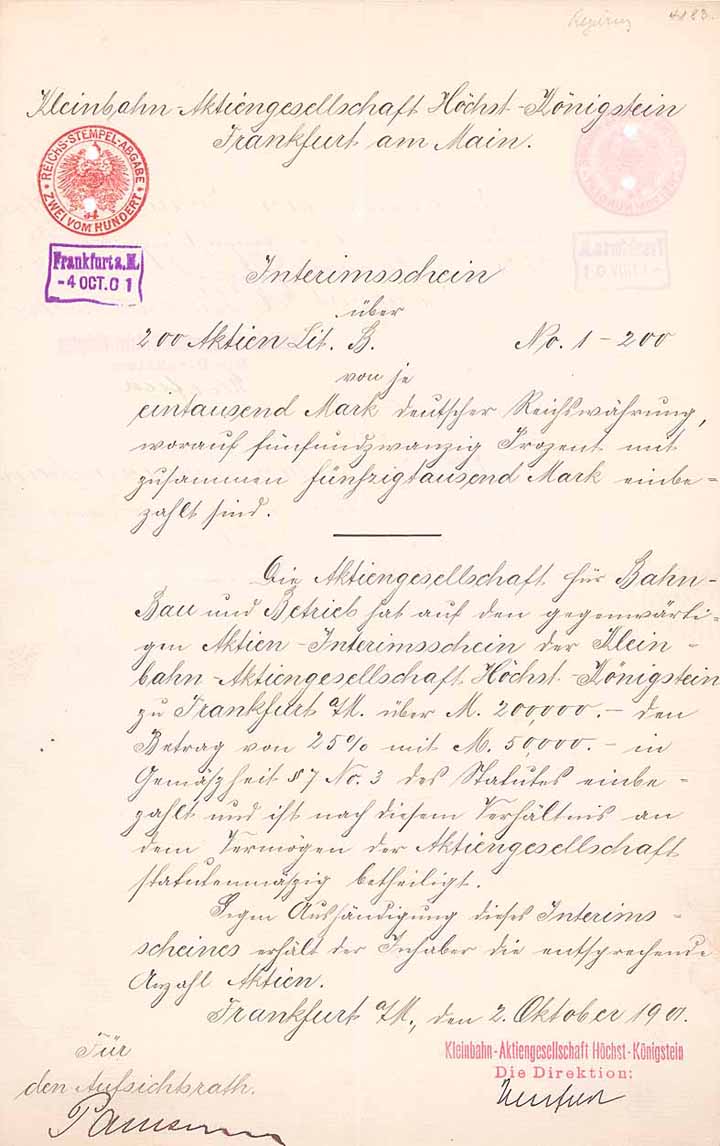 4183.
Kleinbahn-Aktiengesellschaft Höchst-Königstein
Frankfurt am Main.
REICHS-STEMPEL-ABGABE
ZWEI VOM HUNDERT
34
Frankfurt a. M.
-4 OCT. 01
Interimsschein
über
200 Aktien Lit. B. No. 1-200
von je
eintausend Mark deutscher Reichswährung,
worauf fünfundzwanzig Prozent mit
zusammen fünfzigtausend Mark einbe-
zahlt sind.
Die Aktiengesellschaft für Bahn-
Bau und Betrieb hat auf den gegenwärti-
gen Aktien-Interimsschein der Klein-
bahn-Aktiengesellschaft Höchst-Königstein
zu Frankfurt a/M. über M. 200000.- den
Betrag von 25% mit M. 50,000.- in
Gemäßheit §7 No. 3 des Statutes einbe-
zahlt und ist nach diesem Verhältnis an
dem Vermögen der Aktiengesellschaft
statutenmäßig betheiligt.
Gegen Aushändigung dieses Interims-
scheines erhält der Inhaber die entsprechende
Anzahl Aktien.
Frankfurt a/M., den 2. Oktober 1901.
Für
den Aufsichtsrath.
Kleinbahn-Aktiengesellschaft Höchst-Königstein
Die Direktion: